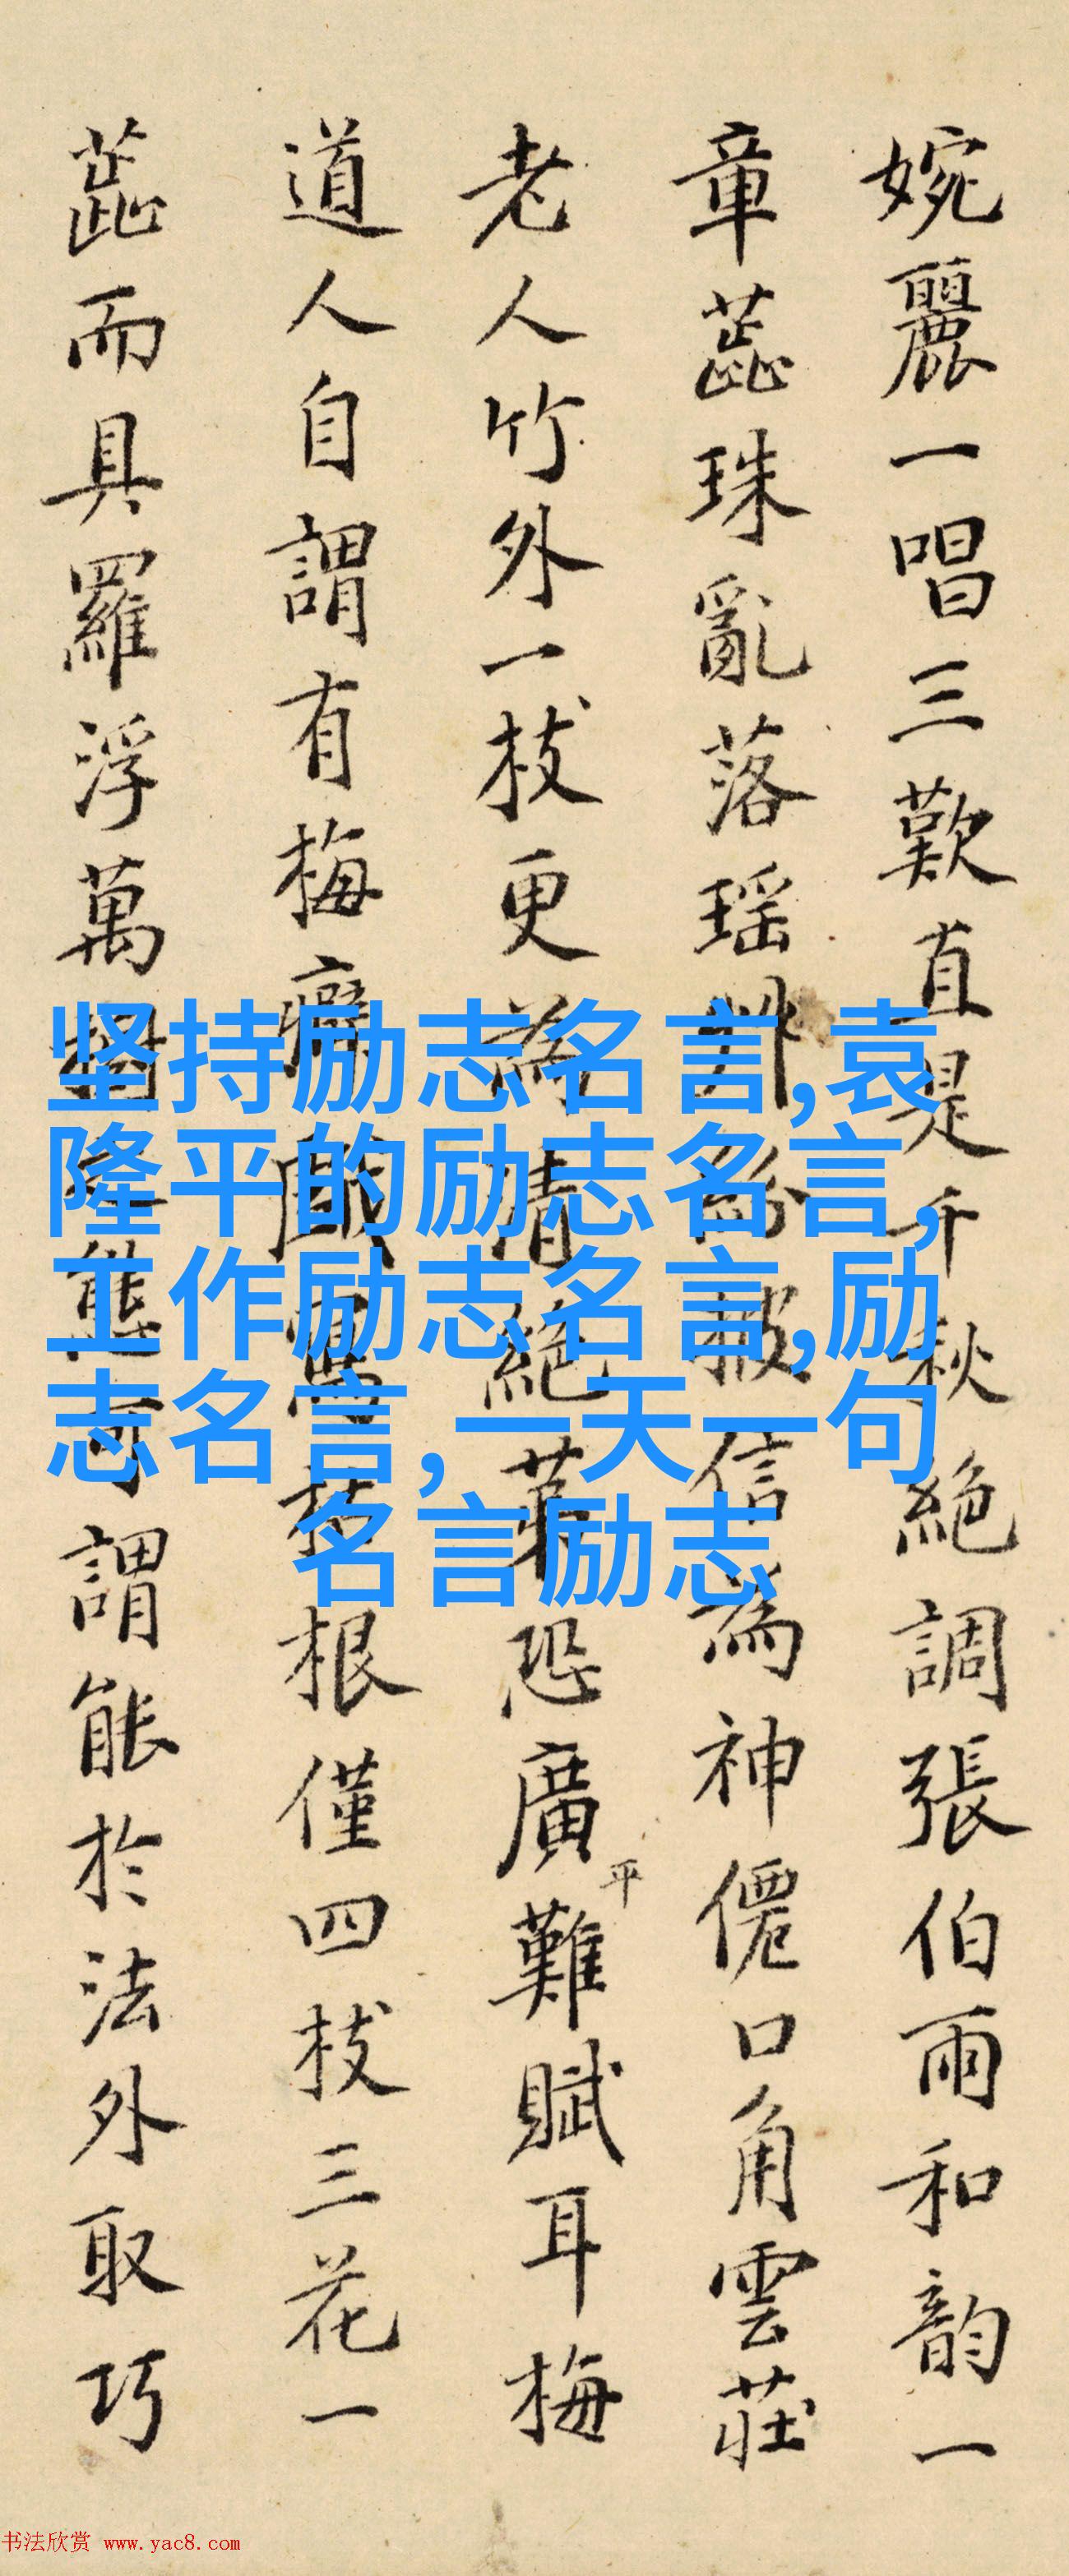 婉麗一唱三歎直是千秋絕調張伯雨和韵一
章蕋珠亂落瑶信為神僊口角雲莊
老人竹外一枝更為清絕苐恐廣平難賦耳梅
道人自謂有梅癖根僅四枝三花一
蕋而具羅浮萬謂能於法外取巧
坚持励志名言,袁
隆平的励志名言,
工作励志名言,励
志名言,一天一句
名言励志
书法欣赏 www.yac8.com